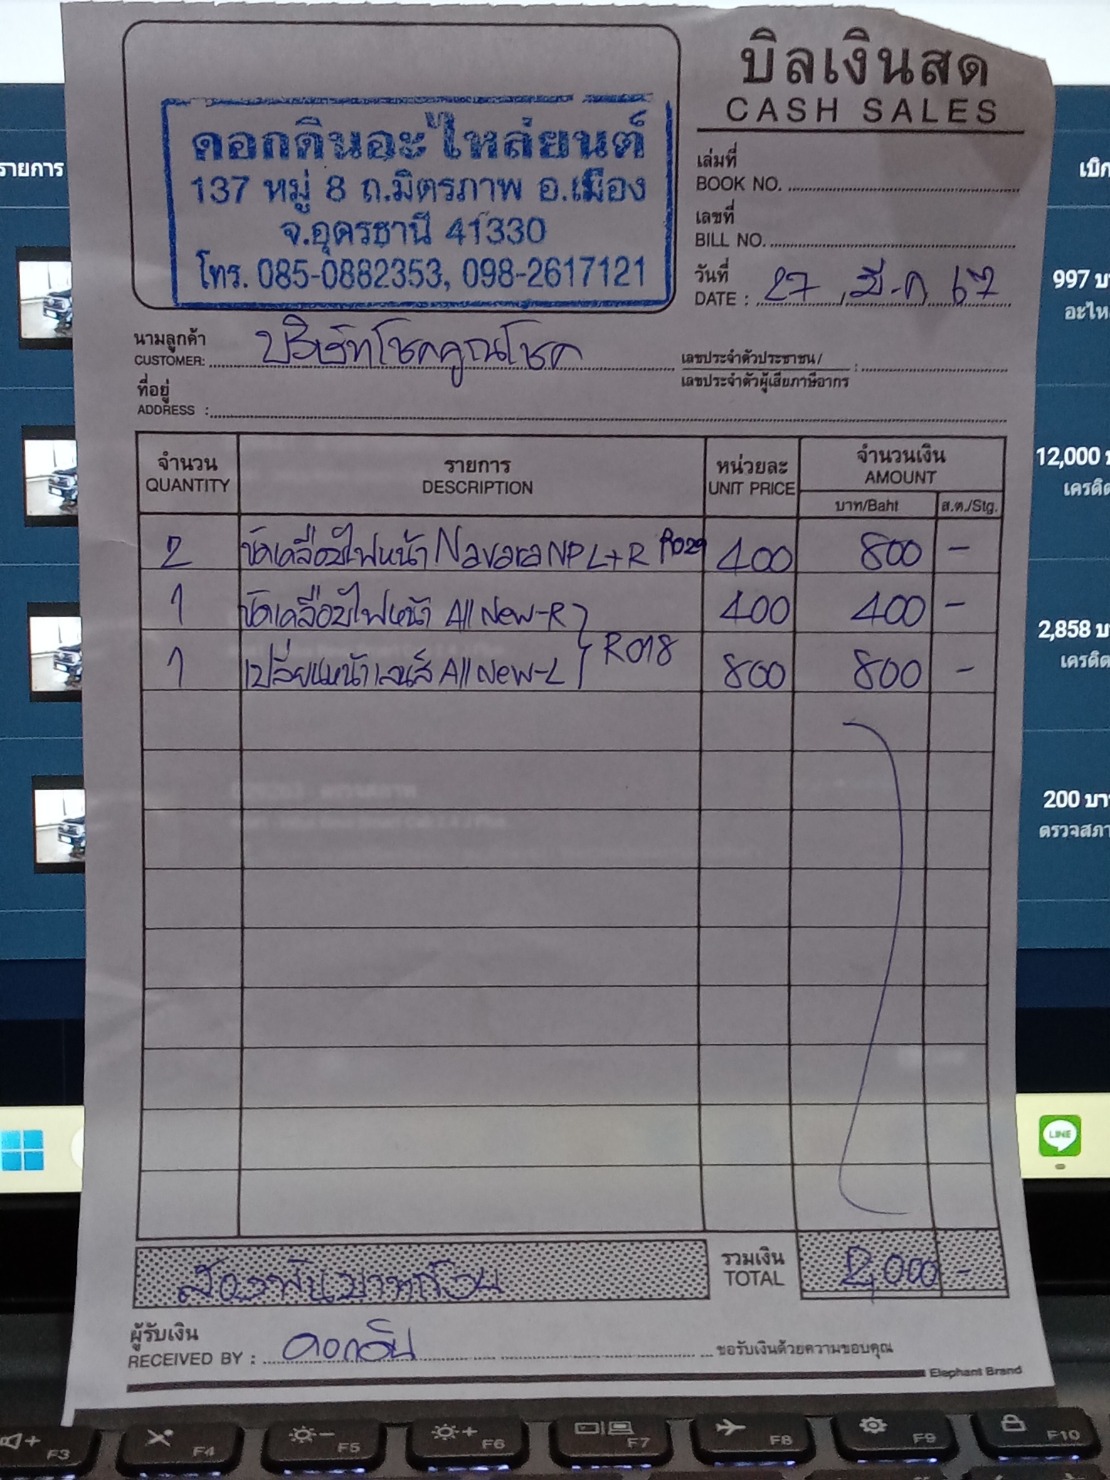 บิลเงินสด
CASH SALES
ดอกดินอะไหล่ยนต์
137 หมู่ 8 ถ.มิตรภาพ อ.เมือง
จ.อุดรธานี 41330
โทร. 085-0882353, 098-2617121
เล่มที่
BOOK NO.
เลขที่
BILL NO.
วันที่
DATE : 27 มี.ค 67
นามลูกค้า
CUSTOMER: บริษัทโชคคูณโชค
เลขประจำตัวประชาชน/ :
เลขประจำตัวผู้เสียภาษีอากร
ที่อยู่
ADDRESS :
จำนวน รายการ หน่วยละ จำนวนเงิน
QUANTITY DESCRIPTION UNIT PRICE AMOUNT
บาท/Baht ส.ต./Stg.
2 ขัดเคลือบไฟหน้า Navara NP L+R R029 400 800 -
1 ขัดเคลือบไฟหน้า All New-R 400 400 -
1 เปลี่ยนหน้าเลนส์ All New-L R018 800 800 -
สองพันบาทถ้วน
รวมเงิน
TOTAL 2,000 -
ผู้รับเงิน
RECEIVED BY : ดอกดิน ขอรับเงินด้วยความขอบคุณ
Elephant Brand
รายการ
เบิก
997
อะไห
12,000
เครดิต
2,858
เครดิต
200 บา
ตรวจสภา
LINE
F3 F4 F5 F6 F7 F8 F9 F10